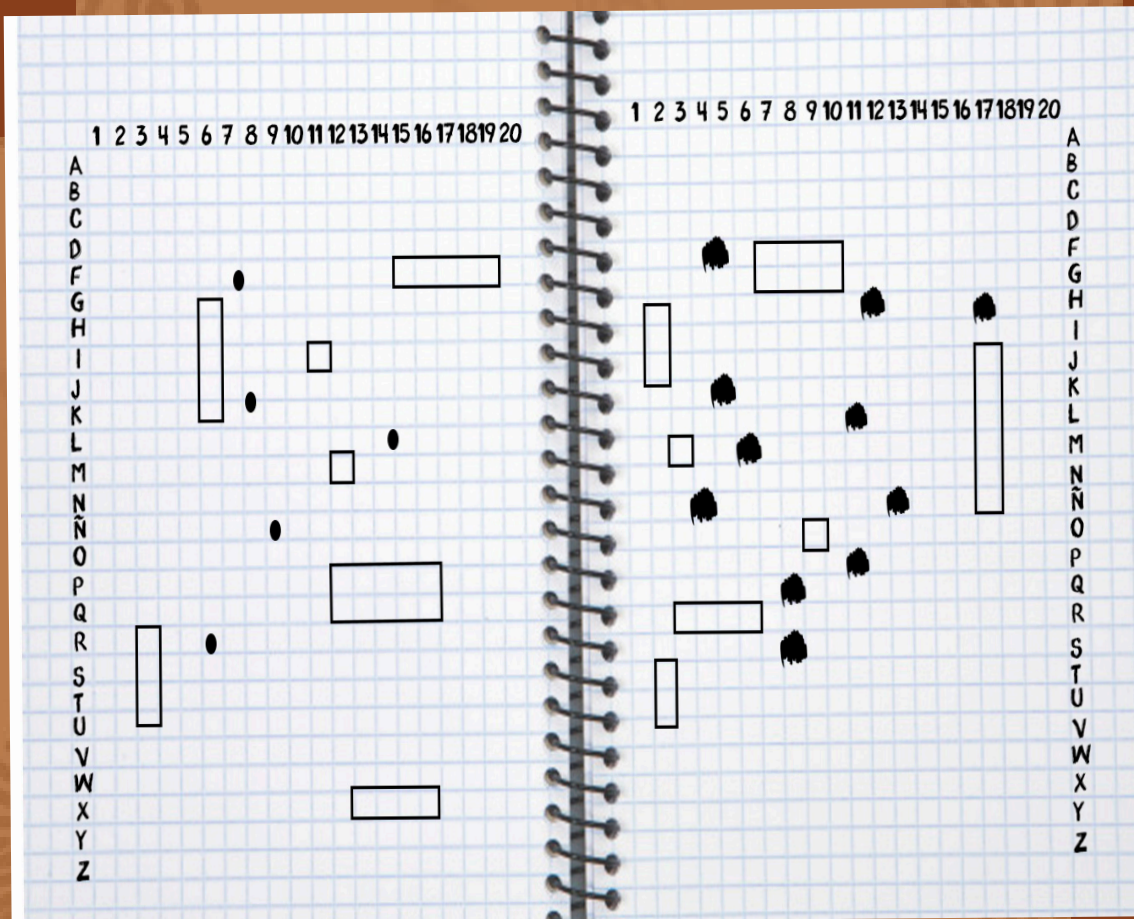 1 2 3 4 5 6 7 8 9 10 11 12 13 14 15 16 17 18 19 20
A
B
C
D
F
G
H
I
J
K
L
M
N
Ñ
O
P
Q
R
S
T
U
V
W
X
Y
Z
1 2 3 4 5 6 7 8 9 10 11 12 13 14 15 16 17 18 19 20
A
B
C
D
F
G
H
I
J
K
L
M
N
Ñ
O
P
Q
R
S
T
U
V
W
X
Y
Z